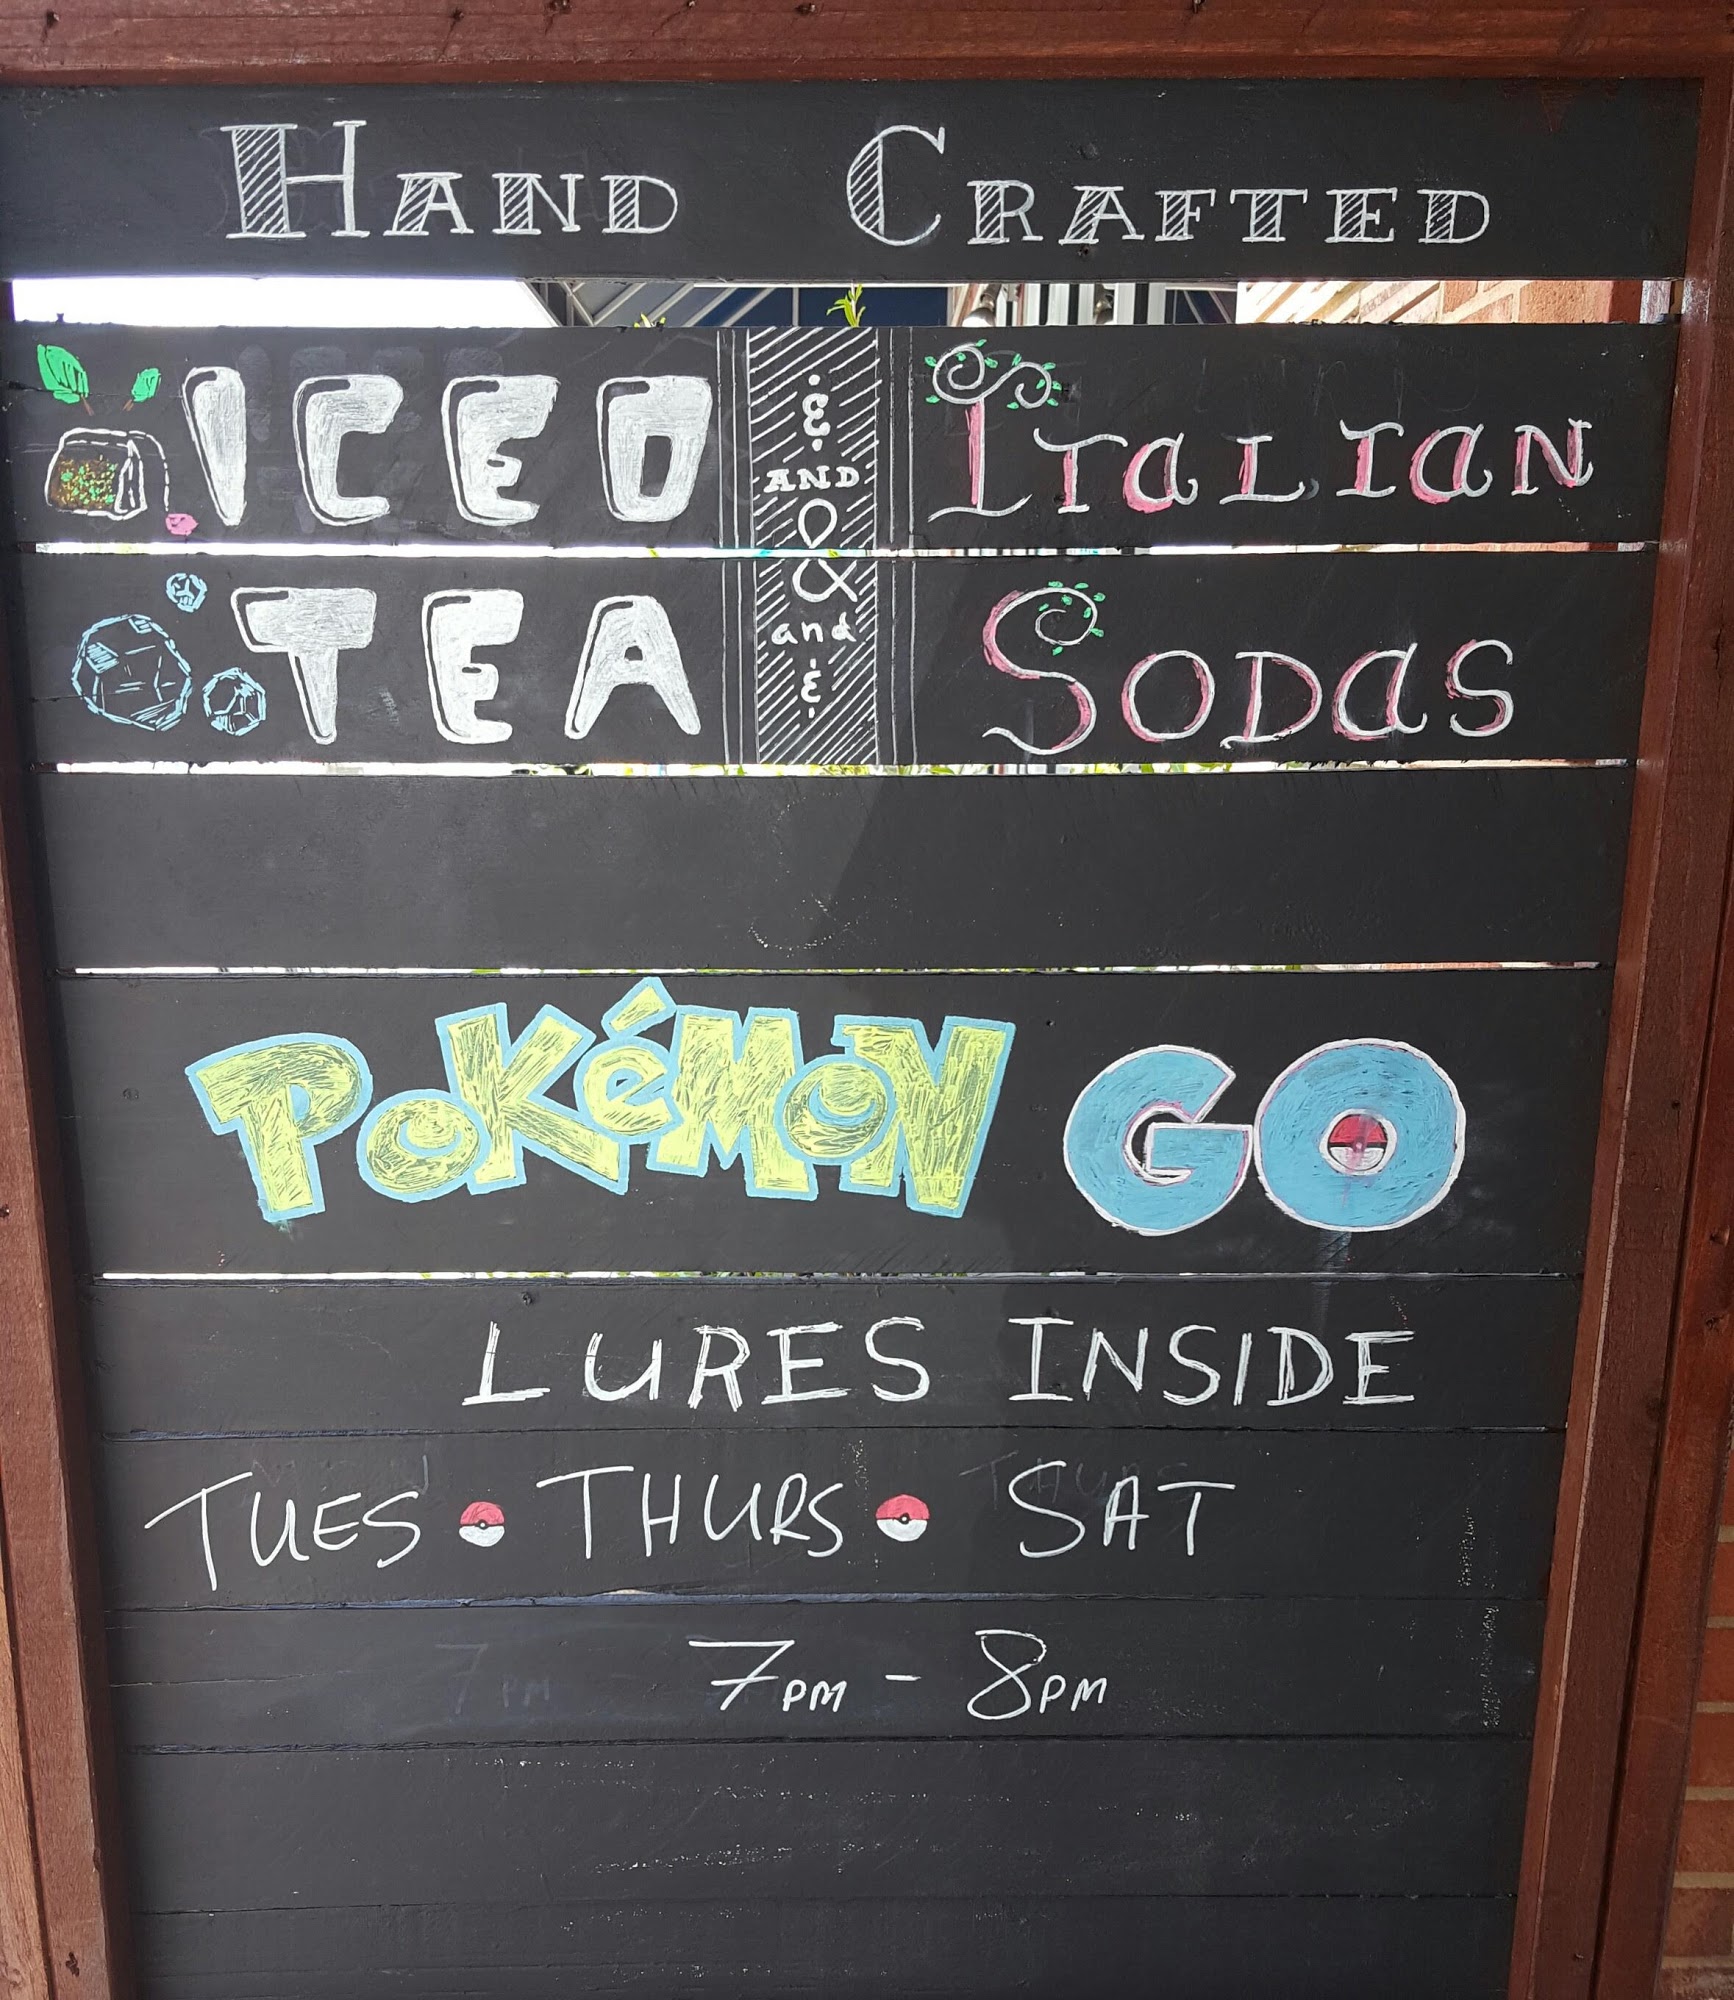 HAND CRAFTED
ICED
TEA
&
AND
&
and
&
ITALIAN
SODAS
POKéMON GO
LURES INSIDE
TUES THURS SAT
7PM - 8PM